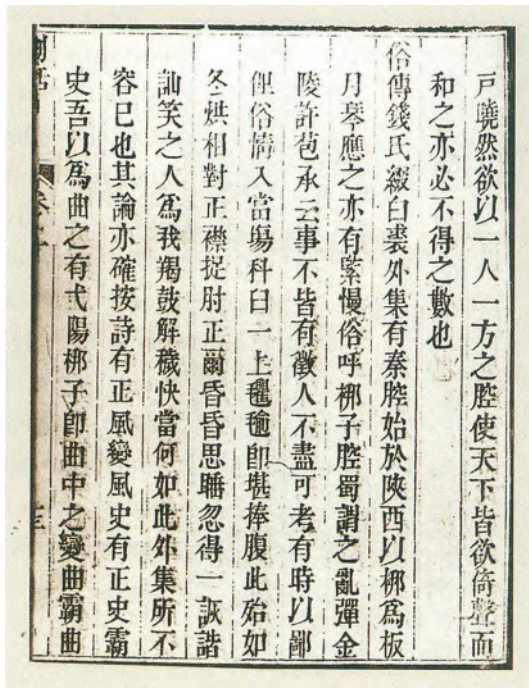 戸曉然欲以一人一方之腔使天下皆欲倚聲而
和之亦必不得之數也
俗傳錢氏綴白裘外集有秦腔始於陝西以梆爲板
月琴應之亦有緊慢俗呼梆子腔蜀謂之亂彈金
陵許苞承云事不皆有徵人不盡可考有時以鄙
俚俗情入當塲科臼一上氍毹卽堪捧腹此殆如
冬烘相對正襟捉肘正爾昏昏思睡忽得一詼諧
訕笑之人爲我羯鼓解穢快當何如此外集所不
容已也其論亦確按詩有正風變風史有正史霸
史吾以爲曲之有弋陽梆子卽曲中之變曲霸曲
卷上